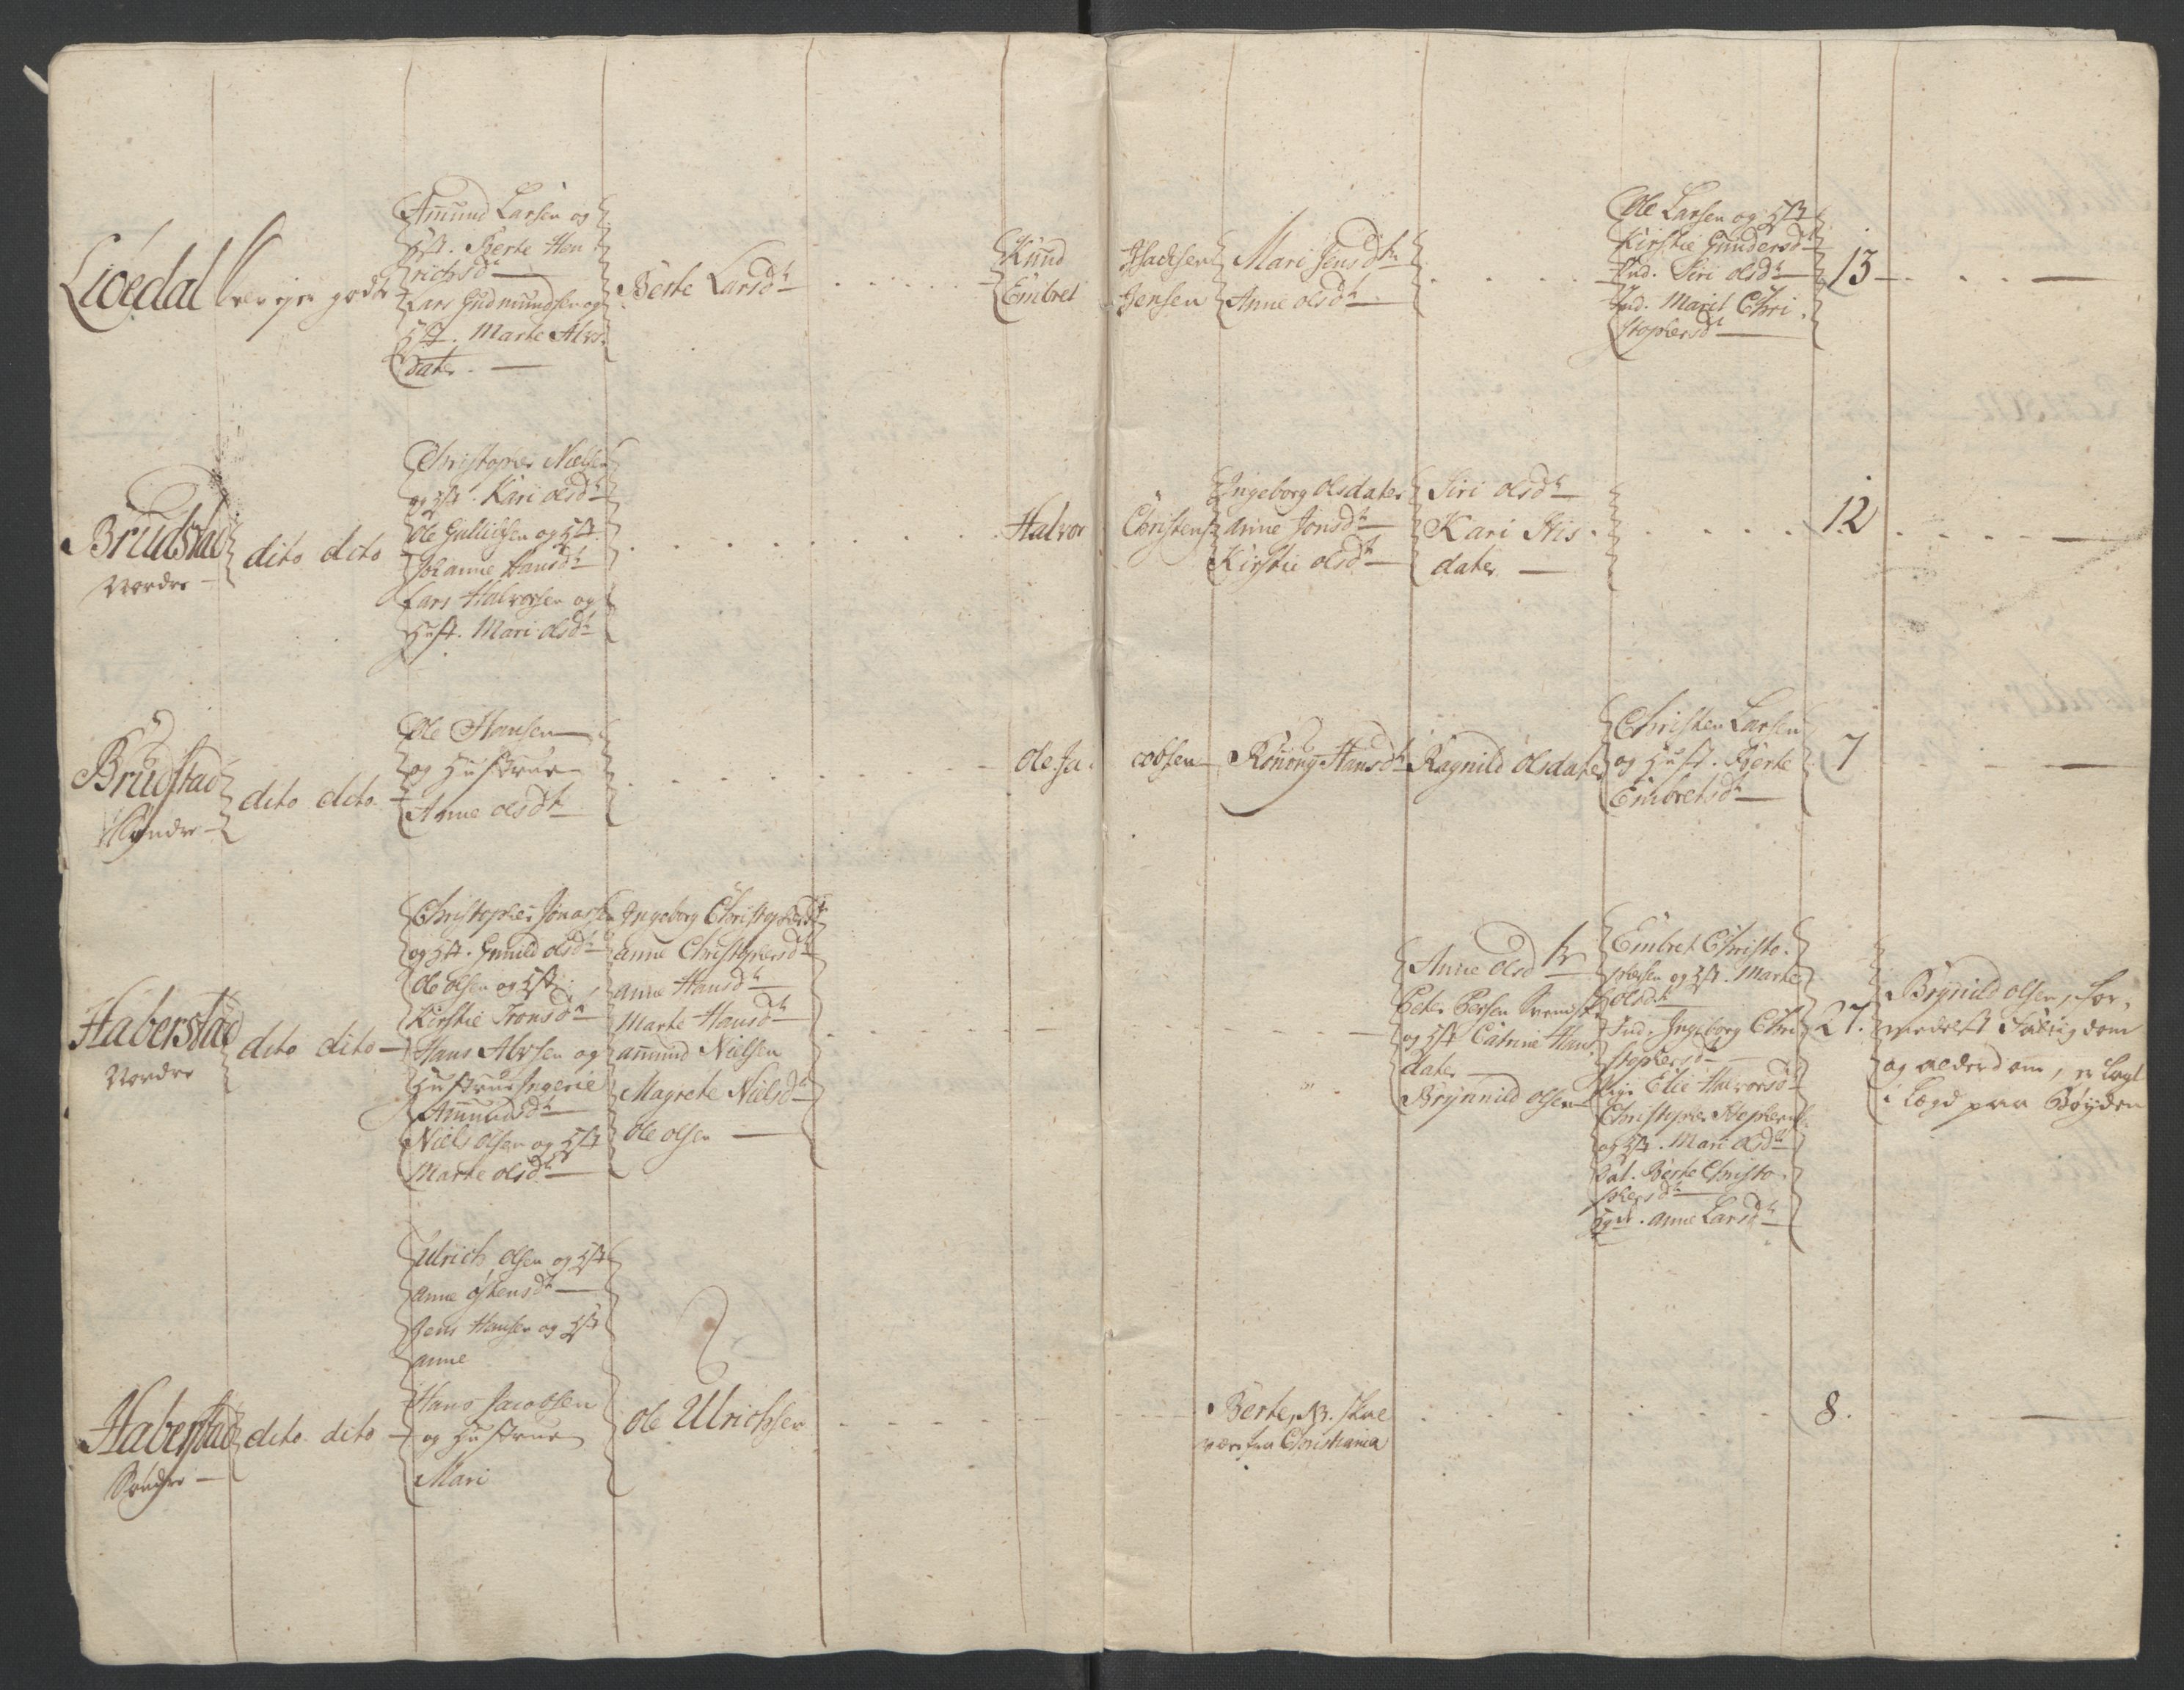 Lioedal
Amund Larsen og
Hst. Berte Hen
richsdr
Lars Gudmundsen og
Hst. Marte Alvs
dater.
Berte Larsdr
Knud Isachsen
Embret Jensen
Mari Jensdr
Anne olsdr
Ole Larsen og Hst
Kirstie Gundersdr
Ind. Siri olsdr
Ind. Marit Chri
stophersdr
13
Brudstad
Nordre
dito dito
Christopher Nielsen
og Hst. Kari olsdr
Ole Gulliksen og Hst
Johanne Hansdr
Lars Halvorsen og
Hust. Mari olsdr
Halvor Christens.
Ingeborg olsdater
Anne Jonsdr
Kirstie olsdr
Siri olsdr
Kari Iffis
dater
12
Brudstad
Syndre
dito dito
Ole Hansen
og Hustrue
Anne olsdr
Ole Ja cobsen
Rönnoug Hansdr
Ragnild olsdater
Christen Larsen
og Hust. Berte
Embretsdr
7
Haberstad
Nordre
dito dito
Christopher Jonassen
og Hst. Gunild olsdr
Ole olsen og Hst
Kirstie Tronsdr
Hans Alvsen og
Hustrue Ingerie
Amundsdr
Niels olsen og Hst
Marte olsdr
Ingeborg Christophersdr
anne Christophersdr
anne Hansdr
Marte Hansdr
amund Nielsen
Magrete Nielsdr
ole olsen
Anne olsdr
Peter Persen Svensk
og Hst Catrine Hans
dater
Brynnild olsen
Embret Christo
phersen og Hst. Marte
olsdr
Ind. Ingeborg Chri
stophersdr
Pige Elie Halvorsdr
Christopher Stophersen
og Hst. Mari olsdr
Dat. Berte Christo
phersdr
anne Larsdr
27.
Brynild olsen, for,
medelst Fatigdom
og alderdom, er lagt
i Lægd paa Bøyden
Haberstad
Søndre
dito dito
Ulrich olsen og Hst
anne östensdr
Jens Hansen og Hst
anne
Hans Jacobsen
og Hustrue
Mari
ole Ulrichsen
Berte, NB. skal
være fra Christiania
8.